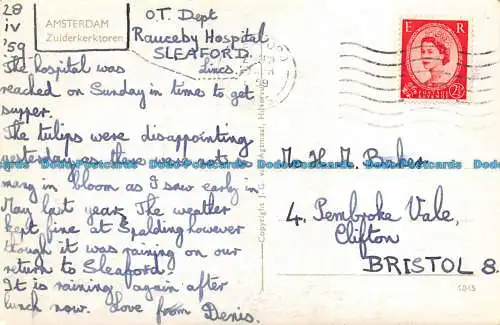 28
iv
'59
AMSTERDAM
Zuiderkerktoren
O.T. Dept
Rauceby Hospital
SLEAFORD.
Lincs.
The hospital was
reached on Sunday in time to get
supper.
The tulips were disappointing
yesterday as there were not as
many in bloom as I saw early in
May last year. The weather
kept fine at Spalding however
though it was raining on our
return to Sleaford.
It is raining again after
lunch now. Love from Denis.
E R
POSTAGE REVENUE
2½D
H. M. Baker
4. Pembroke Vale,
Clifton
BRISTOL 8.
Copyright J. G. van